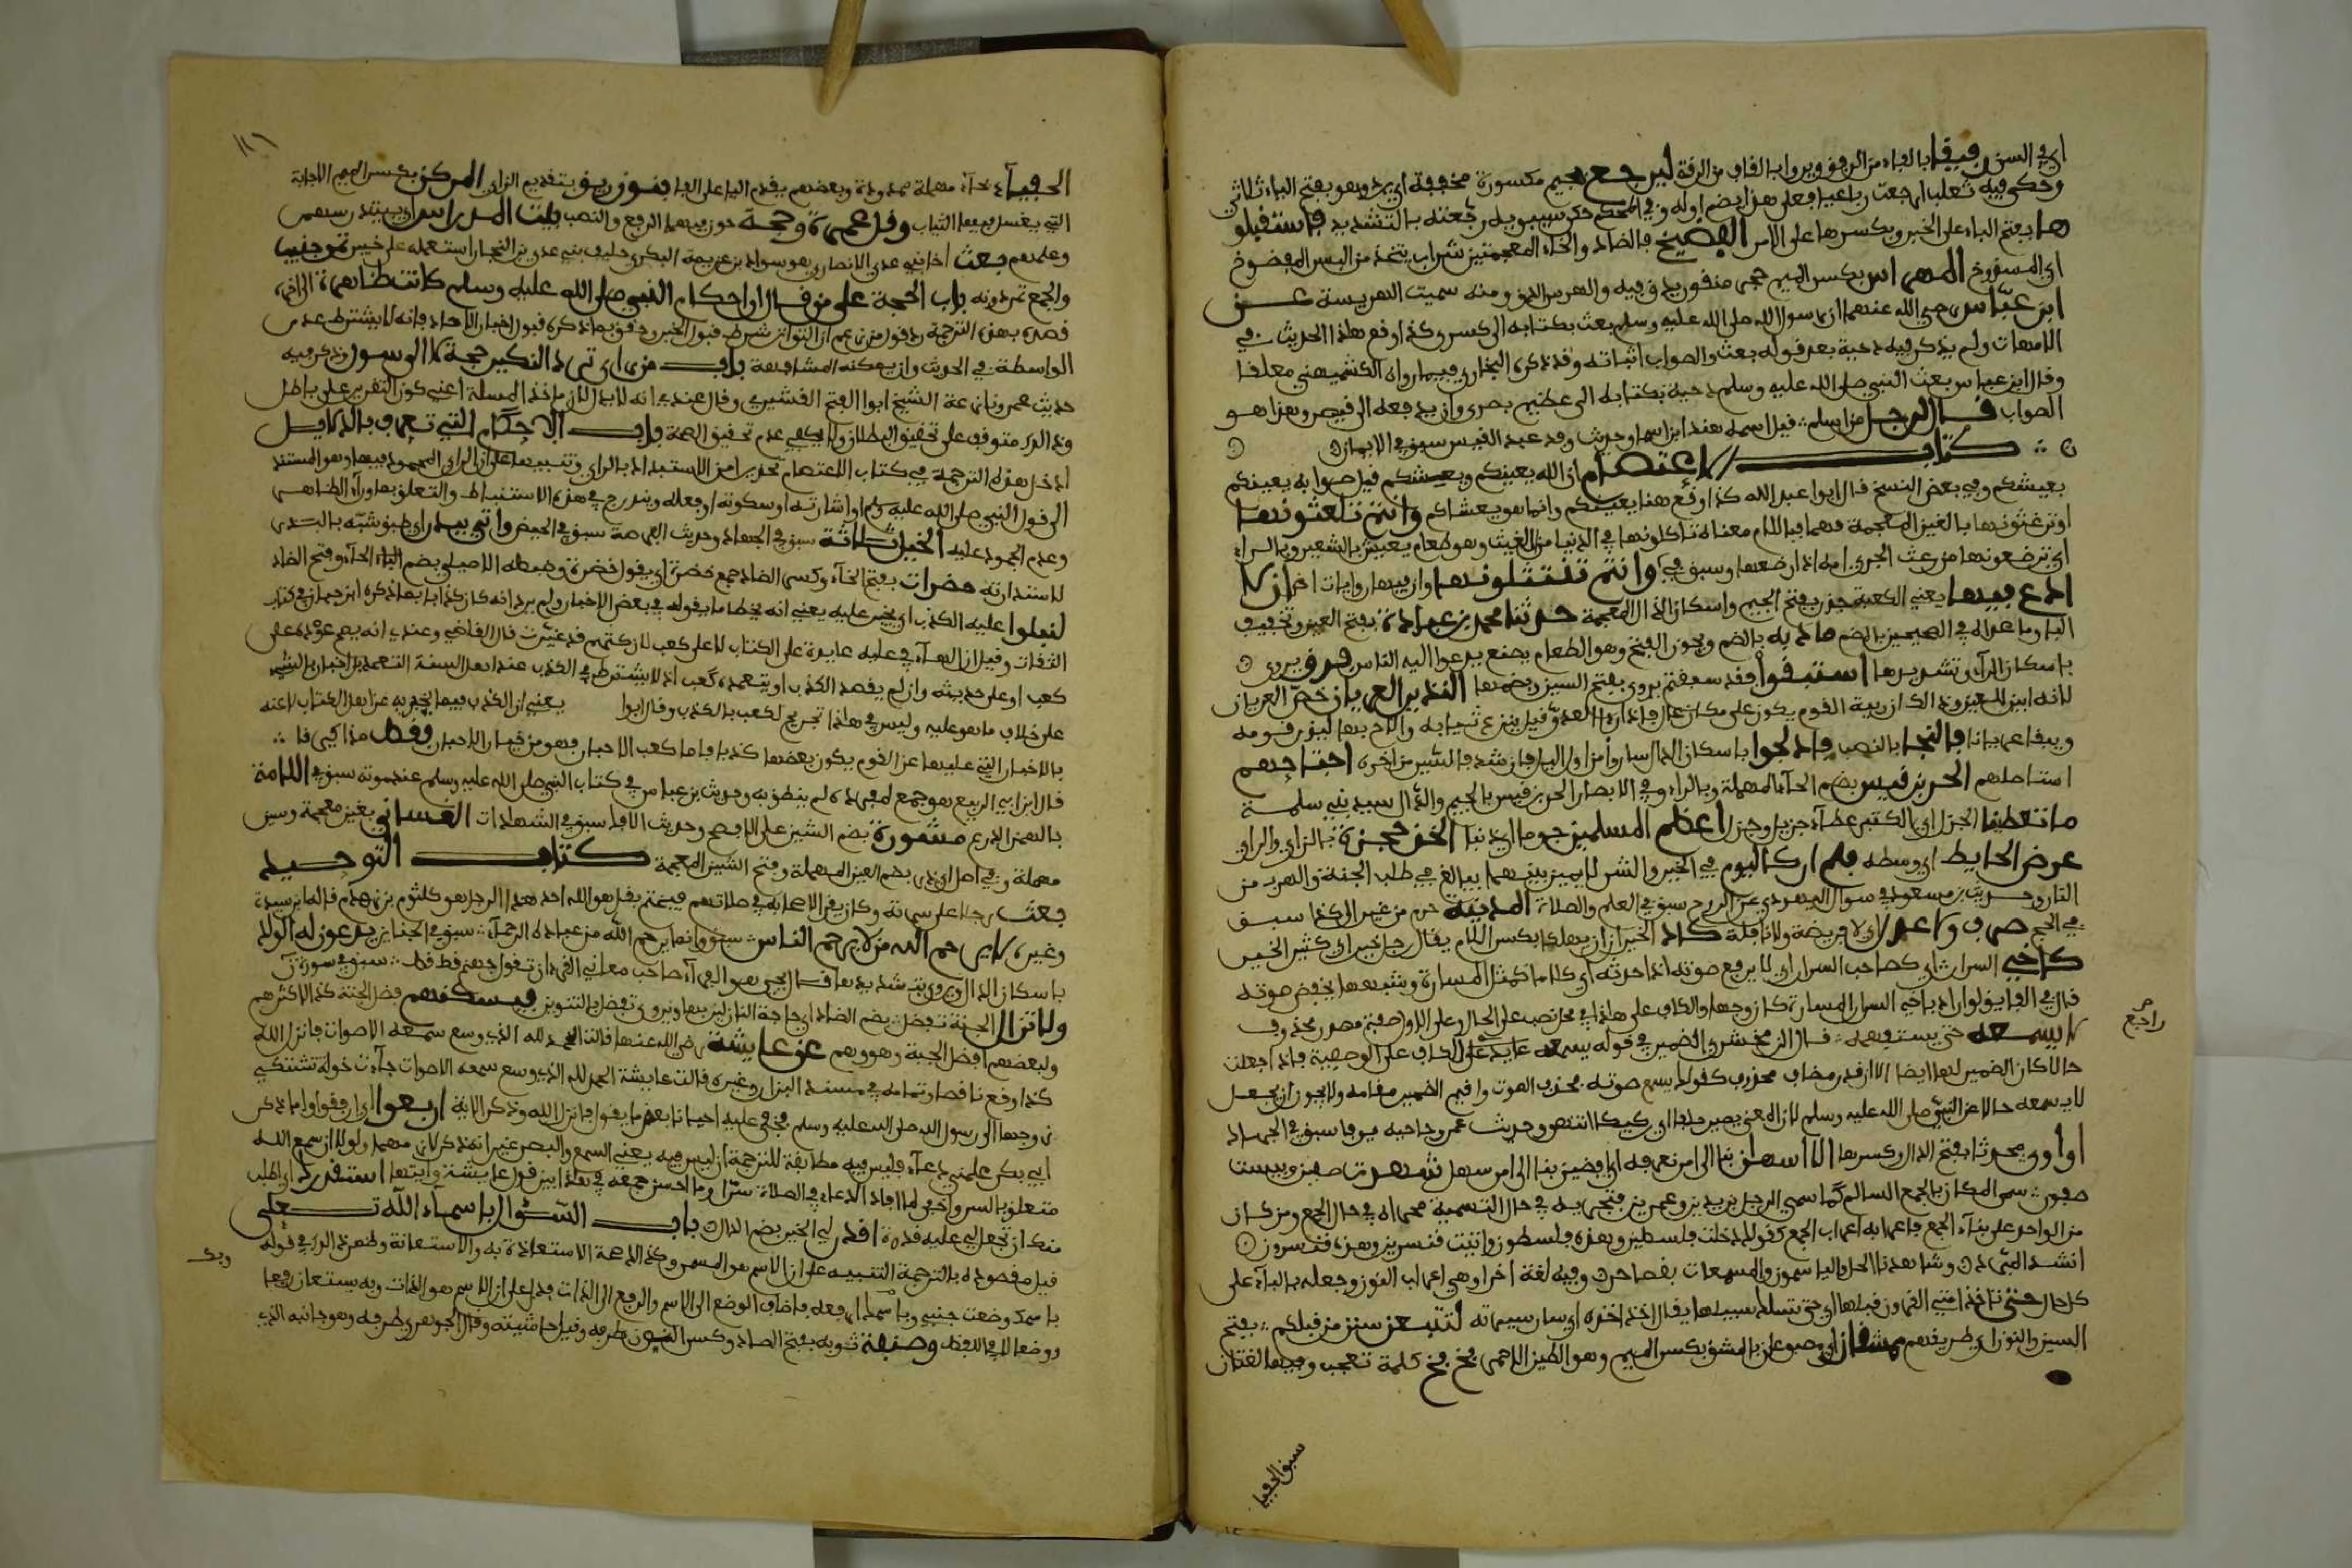 اي في السن رفيقا بالفاء من الرفق ويروا بالقاف من الرقة ليرجع بجيم مكسورة مخففة اي يرد وهو بفتح الياء ثلاثي
وحكى فيه ثعلب ارجعت رباعيا فعلى هذا يضم اوله وفي المحكم حكى سيبويه رجعته بالتشديد فاستقبلو
ها بفتح الباء على الخبر وبكسرها على الامر الفضيخ بالضاد والخاء المعجمتين شراب يتخذ من البسر المفضوخ
اي المشدوخ المهراس بكسر الميم حجر منقور يدق فيه والهرس الدق ومنه سميت الهريسة عن
ابن عباس رضي الله عنهما ان رسول الله صلى الله عليه وسلم بعث بكتابه الى كسرى وكذا وقع هذا الحديث في
الامهات ولم يذكر فيه دحية بعد قوله بعث والصواب اثباته وقد ذكره البخاري فيما رواه الكشميهني معلقا
وقال ابن عباس بعث النبي صلى الله عليه وسلم دحية بكتابه الى عظيم بصرى وان يدفعه الى قيصر وهذا هو
الصواب قال لرجل من اسلم قيل اسمه هند ابن اسما وحديث وفد عبد القيس سبق في الايمان
كتاب الاعتصام ان الله يغنيكم ونعيشكم قيل صوابه يغنيكم
بعيشكم وفي بعض النسخ قال ابوا عبد الله كذا وقع هنا يغنيكم وانما هو يعشاكم وانتم تلغثونها
او ترغثونها بالغين المعجمة فهما فباللام معناه تاكلونها في الدنيا من اللغيث وهو طعام يغش بالشعير وبالراء
اي ترضعونها من رغث الجدي امه اذا رضعها وسبق في وانتم تنتثلونها وان فيها روايات اخر ان لا
ادع فيها يعني الكعبة جذر بفتح الجيم واسكان الذال المعجمة حدثنا محمد بن عبادة بفتح العين وتخفيف
البا وما عداه في الصحيحين بالضم مادبة بالضم ويجوز الفتح وهو الطعام يصنع يدعوا اليه الناس فرق يروى
باسكان الراء وتشديدها استبقوا فقد سبقتم يروى بفتح السين وبضمها النذير العريان خص العريان
لانه ابين للعين وذلك ان ربية القوم يكون على مكان عال فاذا راى العدو قيل ينزع ثيابه والاح بها لينذر قومه
ويبقا عريانا فالنجا بالنصب فادلجوا باسكان الدال ساروا من اول الليل فان شددت كان السير من اخره اجتاحهم
استاصلهم الحر بن قيس بضم الحاء المهملة وبالراء وفي الانصار الجد بن قيس بالجيم والدال سيد بني سلمة
ما تعطينا الجزل اي الكثير عطاء جزيل وجزل اعظم المسلمين جرما اي ذنبا اتخذ حجرة بالزاي والراي
عرض الحايط اي وسطه فلم ار كاليوم في الخير والشر لا يميز بينهما يبالغ في طلب الجنة والهرب من
النار وحديث بن مسعود في سوال اليهودي عن الروح سبق في العلم والصلاة المدينة حرم من عير الى كذا سبق
في الحج صرف ولا عدل اي لا فريضة ولا نافلة كاد الخيران ان يهلكا بكسر اللام يقال رجل خير اي كثير الخير
كاخي السرار اي كصاحب السرار اي لا يرفع صوته اذا حدثه اي كلاما كمثل المسارة وشبهها لخفض صوته
قال في الفايق ولو اراد باخي السرار المسار لكان وجها والكاف على هذا في محل نصب على الحال وعلى الاول صفة مصدر محذوف
لا يسمعه حتى يستفهمه قال الزمخشري الضمير في قوله يسمعه عايد على الكاف على الوصفية فاذا جعلت
حالا كان الضمير لها ايضا الا ان قدر مضاف محذوف كقولك يسمع صوته محذف الصوت واقيم الضمير مقامه ولا يجوز ان يجعل
لا يسمعه حالا عن النبي صلى الله عليه وسلم لان المعنى يصير خلفا ركيكا انتهى وحديث عمر وصاحبه مرفا سبق في الجهاد
اواوى محدثا بفتح الدال وكسرها الا اسهلن بنا الى امر نعرفه اي افضين بنا الى امر سهل شهدت صفين وبيست
صفون سمي المكان بالجمع السالم كما سمي الرجل بزيدين وعمرين فتجريه في حال التسمية مجراه في حال الجمع ومن كان
من الواحد على بناء الجمع فاعرابه اعراب الجمع كقولك دخلت فلسطين وهذه فلسطون واتيت قنسرين وهذه قنسرون
انشد المبرد وشاهدنا الجل والياسمون والمسمعات بقصابها وفيه لغة اخرا وهي اعراب النون وجعله بالياء على
كل حال حتى تاخذ امتي القرون قبلها اي حتى تسلك سبيلها يقال اخذ اخذه اي سار سيرته لتتبعن سنن من قبلكم بفتح
السين والنون اي طريقهم ممشقان اي مصبوغان بالمشق بكسر الميم وهو الطين الاحمر بخ بخ كلمة تعجب وفيها لغتان
راجع
سبق الحفيا
١١٦
الحفياء بحاء مهملة ممدودة وبعضهم يقدم اليا على الفا بنوا زريق بتقديم الزاي المركن بكسر الميم الاجانة
التي يغسل فيها الثياب وقل عمرة وحجة جوز فيهما الرفع والنصب بيت المدراس اي بيت دراستهم
وعلمهم بعث اخا بني عدي الانصاري هو سواد بن غزية البكري حليف بني عدي بن النجار استعمله على خيبر تمر جنيب
والجمع تمر دونه باب الحجة على من قال ان احكام النبي صلى الله عليه وسلم كانت ظاهرة الى اخره
قصده بهذه الترجمة رد قول من زعم ان التواتر شرط في قبول الخبر وحقق بما ذكره قبول اخبار الاحاد وانه لا يشترط عدم
الواسطة في الحديث وان يمكنه المشافهة باب من راى ترك النكير حجة لا الرسول وذكر فيه
حديث عمر ونازعه الشيخ ابوا الفتح القشيري وقال عندي انه لا يدل لان ماخذ المسلة اعني كون التقرير على باطل
وذلك متوقف على تحقيق البطلان ولا يكفي عدم تحقيق الصحة باب الاحكام التي تعرف بالدلايل
ادخل هذه الترجمة في كتاب الاعتصام تحذيرا من الاستبداد بالراي وتنبيها على ان الراي المحمود فيها وهو المستند
الى قول النبي صلى الله عليه وسلم او اشارته او سكوته او فعله ويندرج في هذه الاستنباط والتعلق بما وراء الظاهر
وعدم الجمود عليه الخيل ثلاثة سبق في الجهاد وحديث الفرصة سبق في الحيض واتي ببدر اي طبق شبه بالبدر
لاستدارته خضرات بفتح الخاء وكسر الضاد جمع خضرة اي بقول خضرة وضبطه الاصيلي بضم الخاء وفتح الضاد
لنبلوا عليه الكذب اي نختبر عليه يعني انه يخطا ما يقوله في بعض الاخبار ولم يرد انه كان كذابا بما ذكره ابن حبان في كتاب
الثقات وقيل ان الهاء في عليه عايدة على الكتاب لا على كعب لان كتبهم قد غيرت قال القاضي وعندي انه يصح عوده على
كعب او على حديثه وان لم يقصد الكذب او يتعمده كعب اذ لا يشترط في الكذب عند اهل السنة التعمد بل اخبار بالشيء
على خلاف ما هو عليه وليس في هذا تجريح لكعب بالكذب وقال ابوا يعني ان الكذب فيما يخبر به عن اهل الكتاب لا عنه
بالاخبار التي عليها عن القوم يكون بعضها كذبا فاما كعب الاحبار فهو من خيار الاحبار وفطر مذاكيرنا
قال ابن ابي الربيع هو جمع لمفرد له لم ينطق به وحديث بن عباس في كتاب النبي صلى الله عليه وسلم عند موته سبق في اللامة
بالهمز الدرع مشورة بضم الشين على الافصح وحديث الافك سبق في الشهادات الغساني بغين معجمة وسين
مهملة وفي اصل ابي ذر بضم العين المهملة وفتح الشين المعجمة كتاب التوحيد
بعث رجلا على سرية وكان يقرا لاصحابه في صلاتهم فيختم بقل هو الله احد هذا الرجل هو كلثوم بن زهدم قاله ابن سيدة
وغيره لا يرحم الله من لا يرحم الناس سبق وانما يرحم الله من عباده الرحماء سبق في الجنايز يدعون له الولد
باسكان الدال ويروى بتشديدها قال يحيى هو الفراء صاحب معاني القرءان تقول جهنم قط قط سبق في سورة ق
ولا تزال الجنة تفضل بضم الضاد اي حاجة النازلين بها ويروى بفضل بالتنوين فيسكنهم فضل الجنة كذا لاكثرهم
ولبعضهم افضل الجنة وهو وهم عن عايشة رضي الله عنها قالت الحمد لله الذي وسع سمعه الاصوات فانزل الله
كذا وقع ناقصا وتمامه في مسند البزار وغيره قالت عايشة الحمد لله الذي وسع سمعه الاصوات جاءت خولة تشتكي
زوجها الى رسول الله صلى الله عليه وسلم فخفى علي احيانا بعض ما يقول فانزل الله وذكر الاية اربعوا اي ارفقوا واما ذكر
ابي بكر علمني دعاء فليس فيه مطابقة للترجمة اذ ليس فيه يعني السمع والبصر غير انه ذكر لازمهما ولولا ان سمع الله
متعلق بالسر واخفى لما افاد الدعاء في الصلاة سرا وما احسن جمعه في هذا بين قول عايشة وايتها استقدرك اي اطلب
منك ان تجعل لي عليه قدرة اقدر لي الخير بضم الدال باب السؤال باسماء الله تعلى
قيل مقصوده بالترجمة التنبيه على ان الاسم هو المسمى وكذا لصحة الاستعاذة به والاستعانة وظهر ذلك في قوله
باسمك وضعت جنبي وباسمك ارفعه فاضاف الوضع الى الاسم والرفع الى الذات فدل على ان الاسم هو الذات وبه يستعان رفعا
ووضعا لا في اللفظ وصنفة ثوبه بفتح الصاد وكسر النون طرفه وقيل حاشيته وقال الجوهري طرفه وهو جانبه الذي
وبك